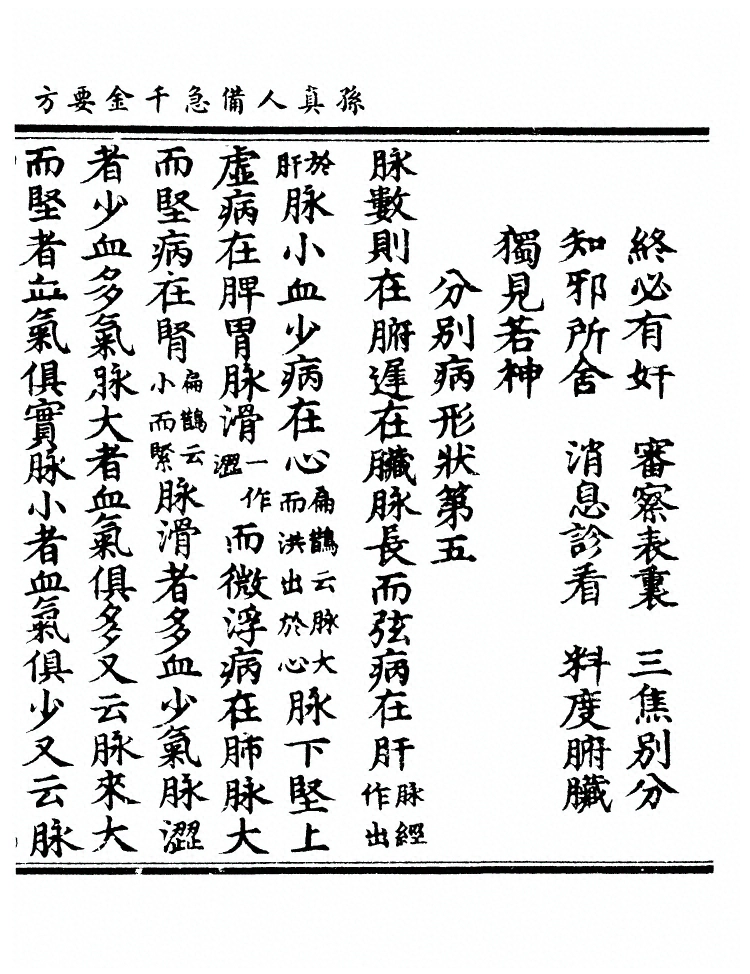 孫真人備急千金要方
終必有奸　審察表裏　三焦別分
知邪所舍　消息診看　料度腑臟
獨見若神
分別病形狀第五
脉數則在腑遲在臟脉長而弦病在肝脉經作出
於肝脉小血少病在心扁鵲云脉大而洪出於心脉下堅上
虛病在脾胃脉滑一作澀而微浮病在肺脉大
而堅病在腎扁鵲云小而緊脉滑者多血少氣脉澀
者少血多氣脉大者血氣俱多又云脉來大
而堅者血氣俱實脉小者血氣俱少又云脉